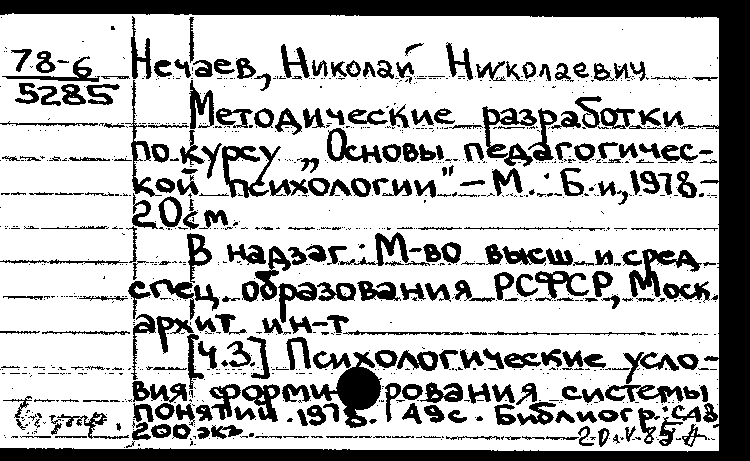 78-6
5285
Нечаев, Николай Николаевич
Методические разработки
по курсу „Основы педагогичес-
кой психологии". – М.: Б.и, 1978.–
20см.
В надзаг.: М-во высш и сред
спец. образования РСФСР, Моск.
архит. ин-т
[Ч.3.] Психологические усло-
вия формирования системы
понятий. 1978. 49с. Библиогр.: с48
200 экз.